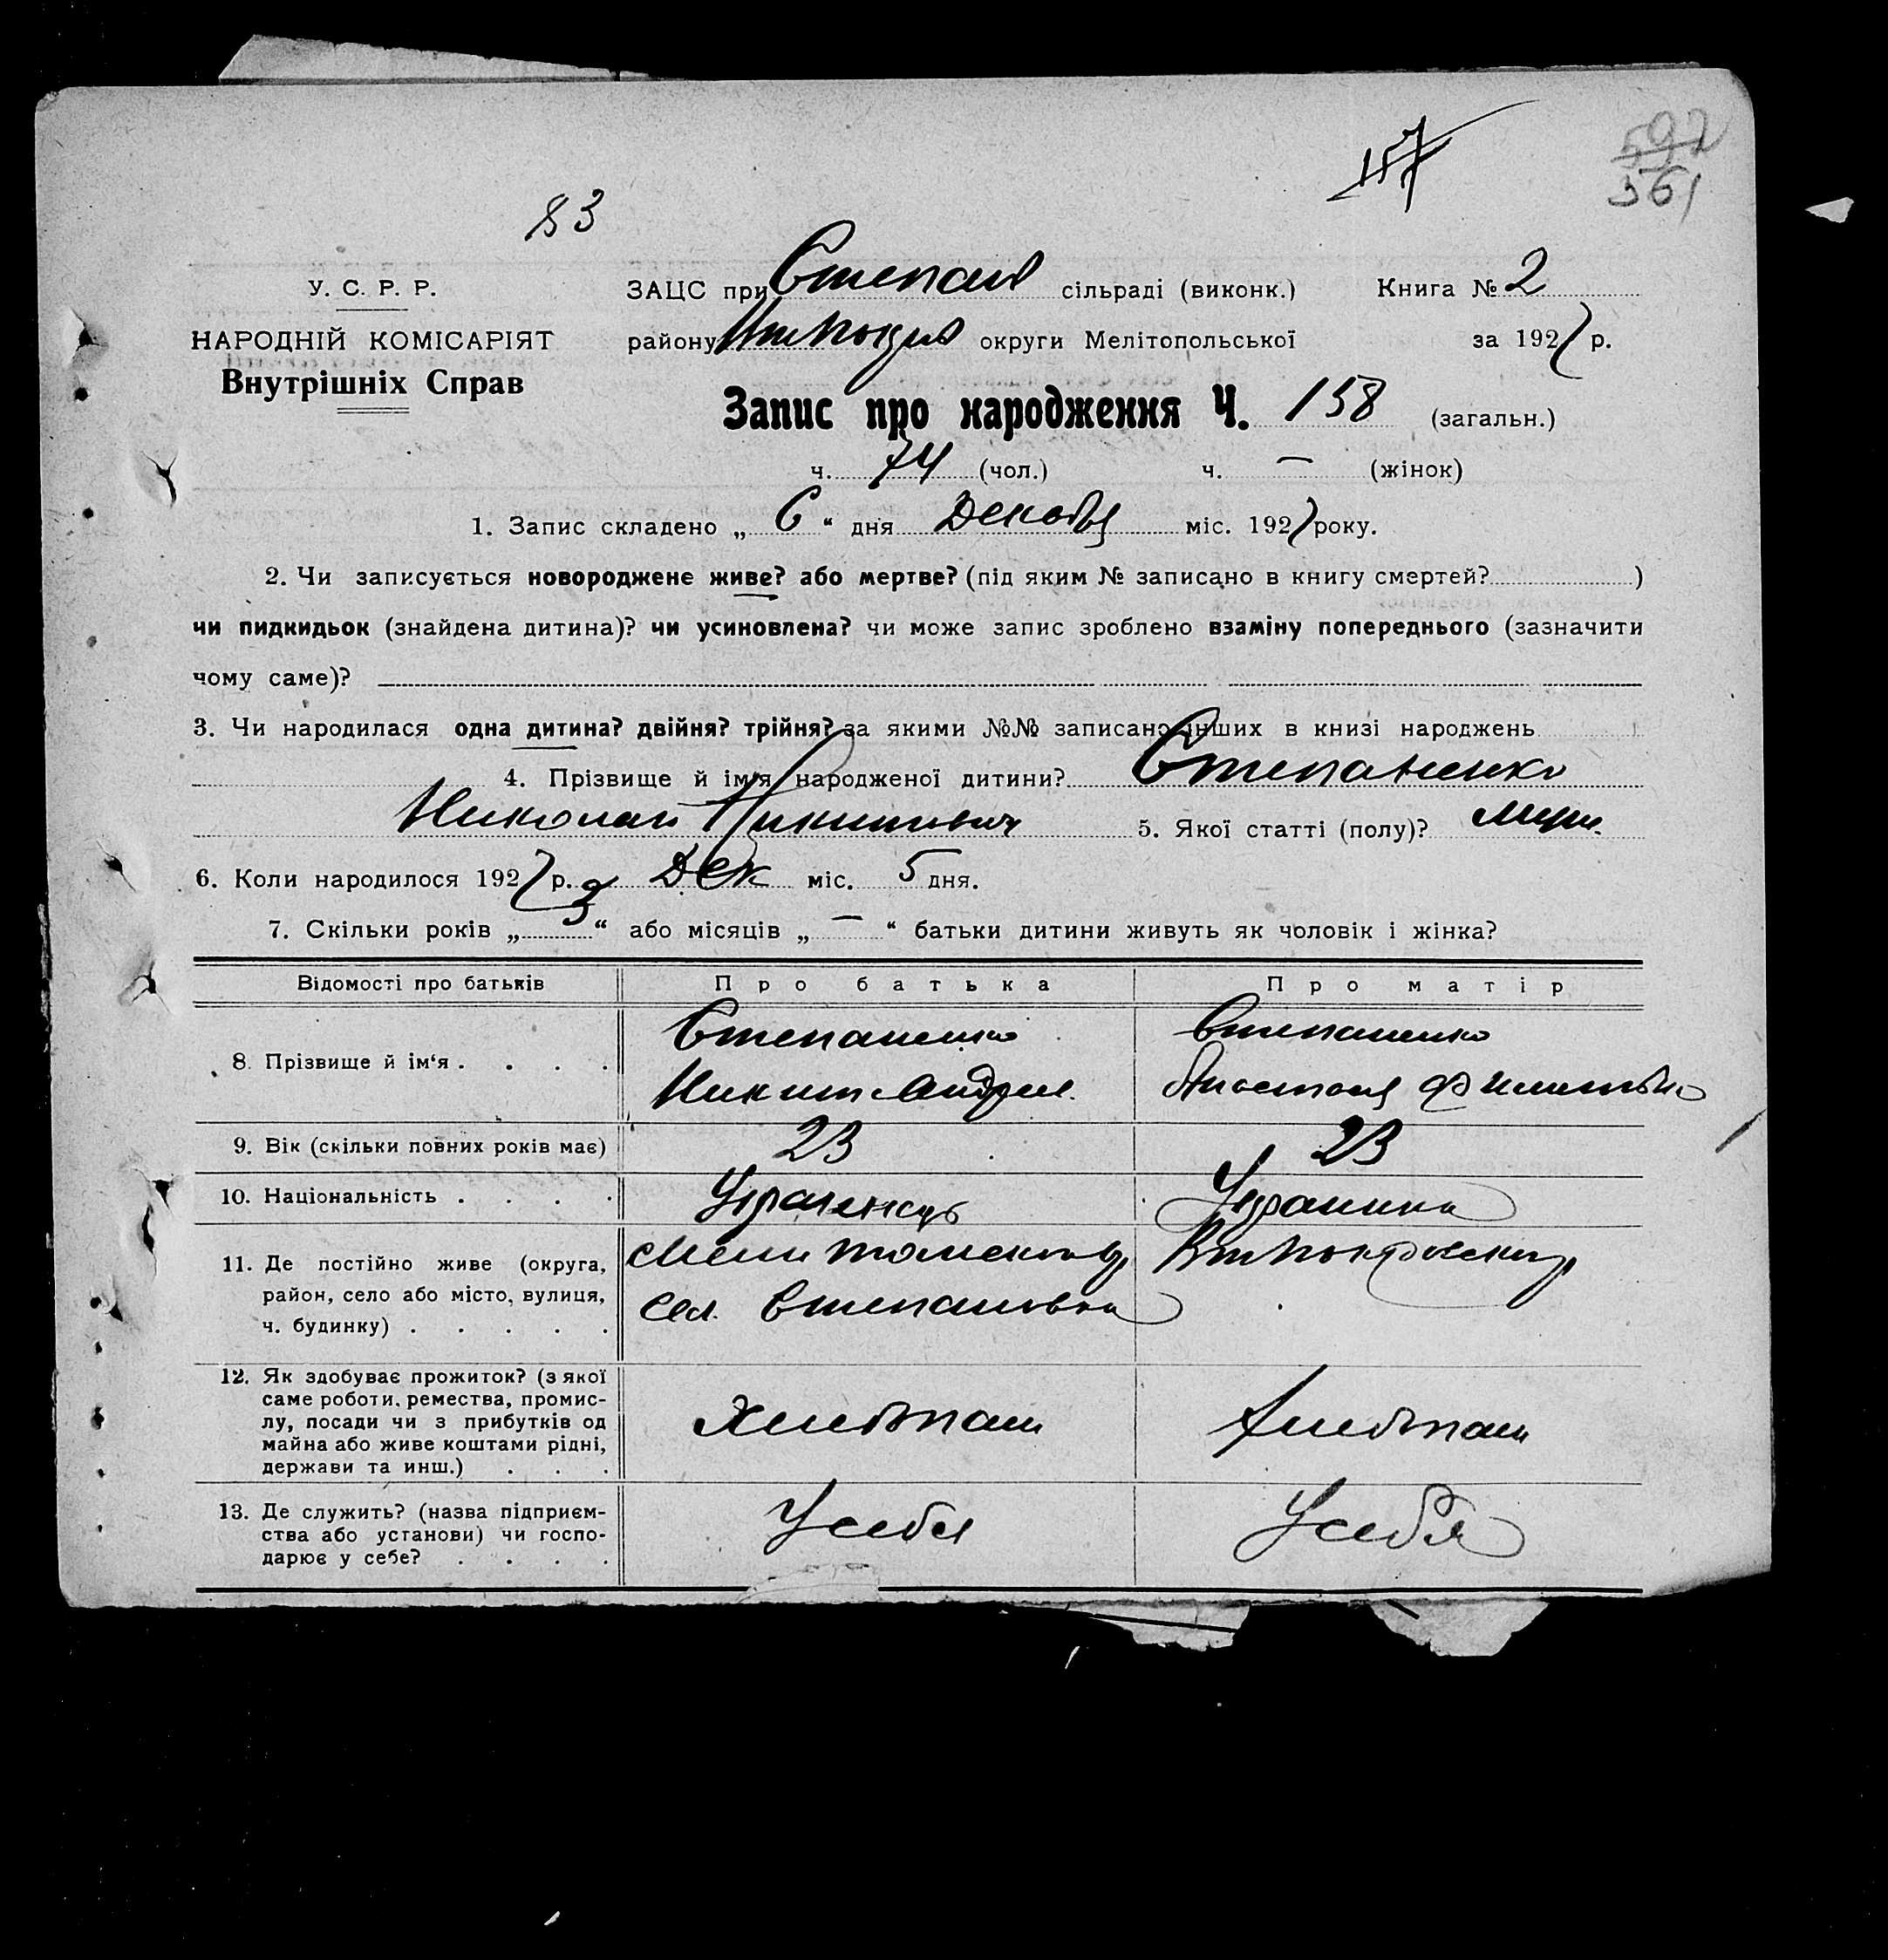 157
592
361
83
У. С. Р. Р.
НАРОДНІЙ КОМІСАРІЯТ
Внутрішніх Справ
ЗАЦС при Степан сільраді (виконк.) Книга № 2
району округи Мелітопольської за 1927 р.
Запис про народження Ч. 158 (загальн.)
ч. 74 (чол.) ч. — (жінок)
1. Запис складено „ 6 “ дня Декабя міс. 1927 року.
2. Чи записується новороджене живе? або мертве? (під яким № записано в книгу смертей? )
чи пидкидьок (знайдена дитина)? чи усиновлена? чи може запис зроблено взаміну попереднього (зазначити
чому саме)?
3. Чи народилася одна дитина? двійня? трійня? за якими №№ записано інших в книзі народжень
4. Прізвище й ім'я народженої дитини? Степаненко
Николай Никитович 5. Якої статті (полу)? Муж.
6. Коли народилося 1927 р. Дек міс. 5 дня.
7. Скільки років „ 3 “ або місяців „ — “ батьки дитини живуть як чоловік і жінка?
Відомості про батьків Про батька Про матір
8. Прізвище й ім‘я . . . . Степаненко Степаненко
Никит Андрее Анастасия Филиповн
9. Вік (скільки повних років має) 23 23
10. Національність . . . . Украинець Украинка
11. Де постійно живе (округа, район, село або місто, вулиця, ч. будинку) . . . . .
Сел. Степановка
12. Як здобуває прожиток? (з якої
саме роботи, ремества, промис-
лу, посади чи з прибутків од
майна або живе коштами рідні,
держави та инш.) . . . Хлебопаш Хлебопаш
13. Де служить? (назва підприєм-
ства або установи) чи госпо-
дарює у себе? . . . . У себя У себя